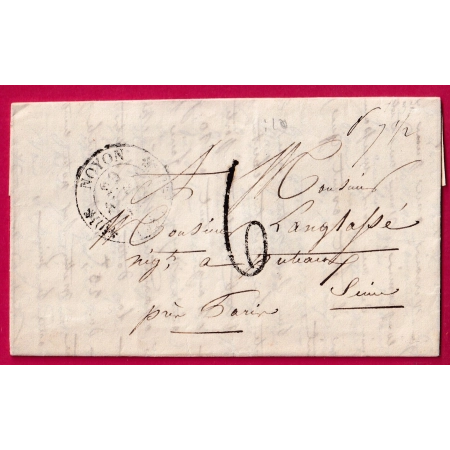 P 7 1/2
NOYON
6
A Monsieur
Monsieur Langlassé
nég.t a Puteaux
Seine
près Paris